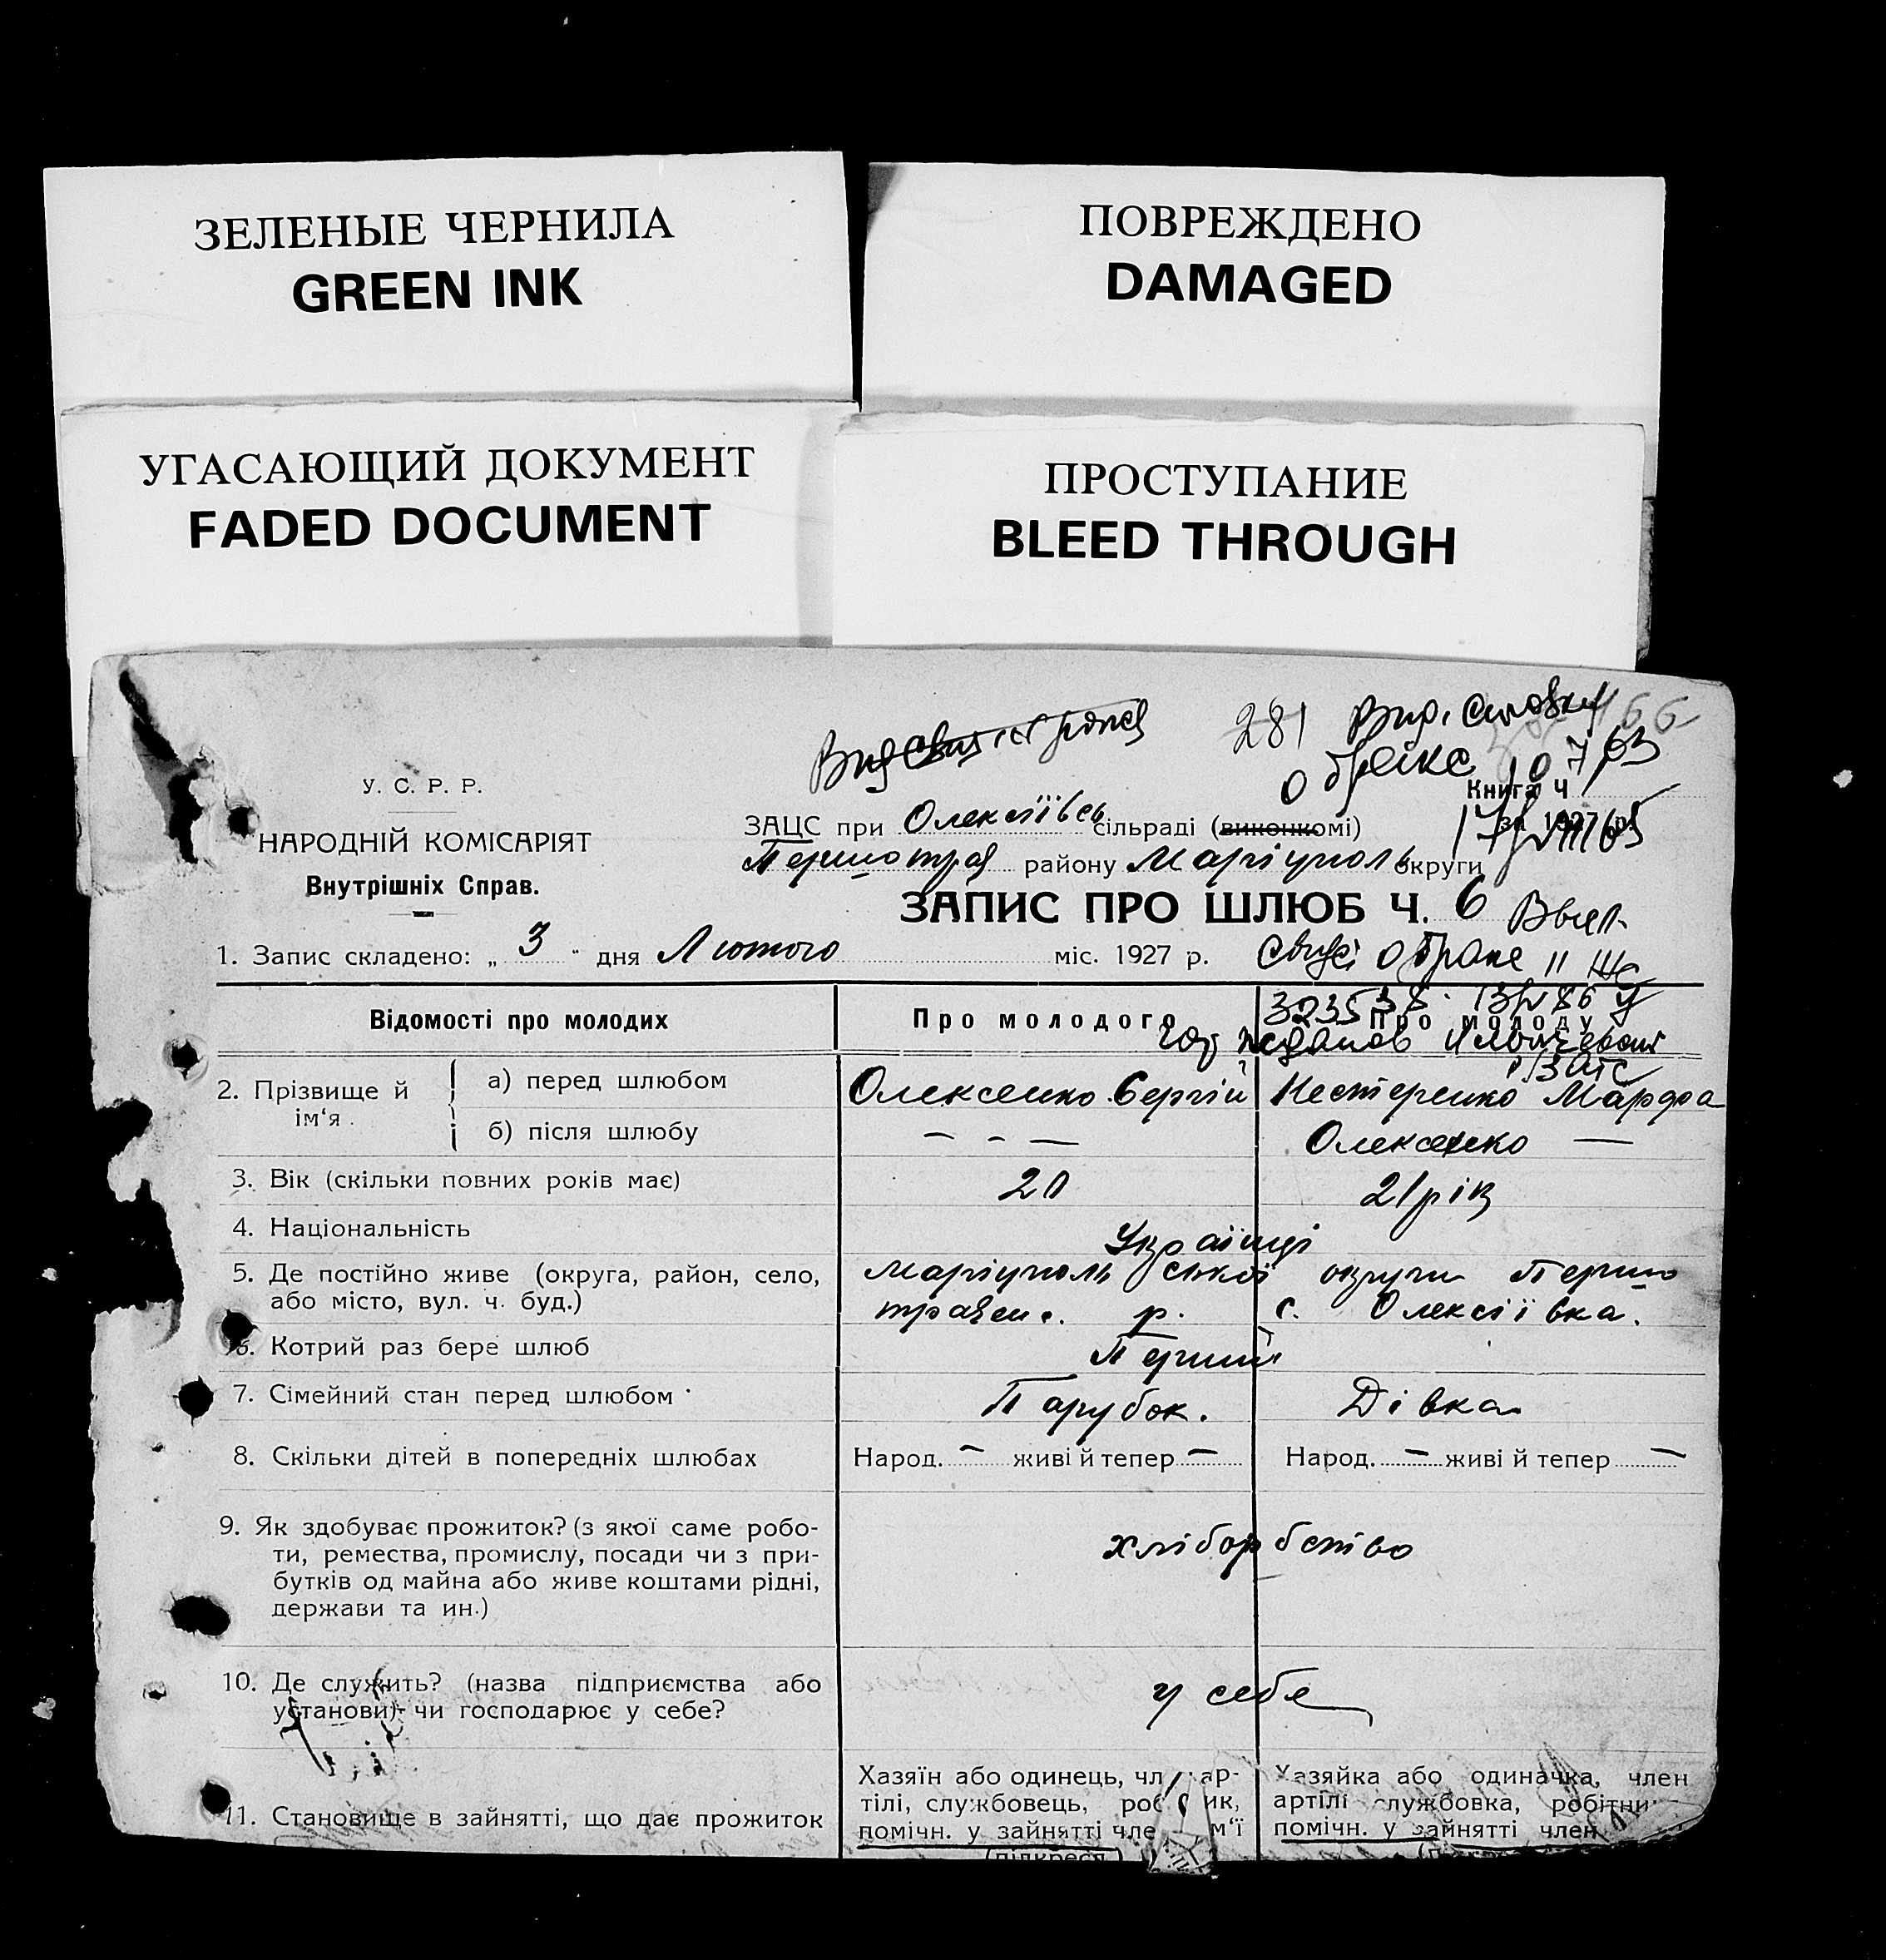 ЗЕЛЕНЫЕ ЧЕРНИЛА
GREEN INK
ПОВРЕЖДЕНО
DAMAGED
УГАСАЮЩИЙ ДОКУМЕНТ
FADED DOCUMENT
ПРОСТУПАНИЕ
BLEED THROUGH
281
Книга Ч
У. С. Р. Р.
НАРОДНІЙ КОМІСАРІЯТ
Внутрішніх Справ.
ЗАЦС при Олексіївсь сільраді (виконкомі) за 1927 р.
Першотра району Маріуполь округи
ЗАПИС ПРО ШЛЮБ Ч. 6
1. Запис складено: „ 3 " дня Лютого міс. 1927 р.
о браке
Відомості про молодих
Про молодого
Про молоду
2. Прізвище й ім'я
а) перед шлюбом Олексенко Сергій Нестеренко Марфа
б) після шлюбу — - — Олексенко —
3. Вік (скільки повних років має) 20 21 рік
4. Національність Українці
5. Де постійно живе (округа, район, село, Маріупольської округи Першо
або місто, вул. ч. буд.) травен. р. с. Олексіївка.
6. Котрий раз бере шлюб Перший
7. Сімейний стан перед шлюбом Парубок. Дівка
8. Скільки дітей в попередніх шлюбах Народ. — живі й тепер — Народ. — живі й тепер —
9. Як здобуває прожиток? (з якої саме робо-
ти, ремества, промислу, посади чи з при-
бутків од майна або живе коштами рідні,
держави та ин.)
хліборбство
10. Де служить? (назва підприємства або
установи) чи господарює у себе?
у себе
11. Становище в зайнятті, що дає прожиток
Хазяїн або одинець, чл ар-
тілі, службовець, роб ик,
помічн. у зайнятті чле м'ї
(підкресл.)
Хазяйка або одиначка, член
артілі службовка, робітни
помічн. у зайнятті член